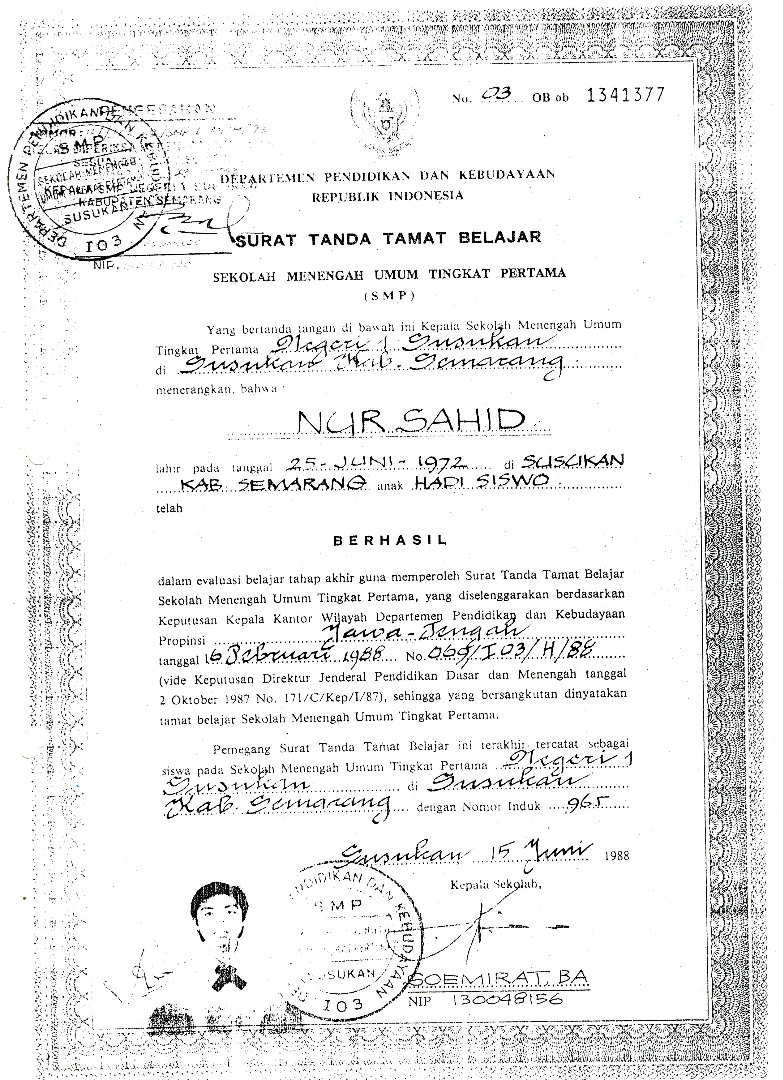 No. 03 OB ob 1341377
PENGESAHAN
DEPARTEMEN PENDIDIKAN DAN KEBUDAYAAN
SMP
SUSUKAN
I03
KABUPATEN SEMARANG
NIP.
DEPARTEMEN PENDIDIKAN DAN KEBUDAYAAN
REPUBLIK INDONESIA
SURAT TANDA TAMAT BELAJAR
SEKOLAH MENENGAH UMUM TINGKAT PERTAMA
(SMP)
Yang bertanda tangan di bawah ini Kepala Sekolah Menengah Umum
Tingkat Pertama Negeri 1 Susukan
di Susukan Kab. Semarang
menerangkan, bahwa :
NUR SAHID
lahir pada tanggal 25-JUNI-1972 di SUSUKAN
KAB. SEMARANG anak HADI SISWO
telah
BERHASIL
dalam evaluasi belajar tahap akhir guna memperoleh Surat Tanda Tamat Belajar
Sekolah Menengah Umum Tingkat Pertama, yang diselenggarakan berdasarkan
Keputusan Kepala Kantor Wilayah Departemen Pendidikan dan Kebudayaan
Propinsi Jawa-Tengah
tanggal 16 Pebruari 1988 No. 069/I03/H/88
(vide Keputusan Direktur Jenderal Pendidikan Dasar dan Menengah tanggal
2 Oktober 1987 No. 171/C/Kep/I/87), sehingga yang bersangkutan dinyatakan
tamat belajar Sekolah Menengah Umum Tingkat Pertama.
Pemegang Surat Tanda Tamat Belajar ini terakhir tercatat sebagai
siswa pada Sekolah Menengah Umum Tingkat Pertama Negeri 1
Susukan di Susukan
Kab. Semarang dengan Nomor Induk 965
Susukan 15 Juni 1988
Kepala Sekolah,
PENDIDIKAN DAN KEBUDAYAAN
SMP
SUSUKAN
I03
SOEMIRAT. BA
NIP 130048156